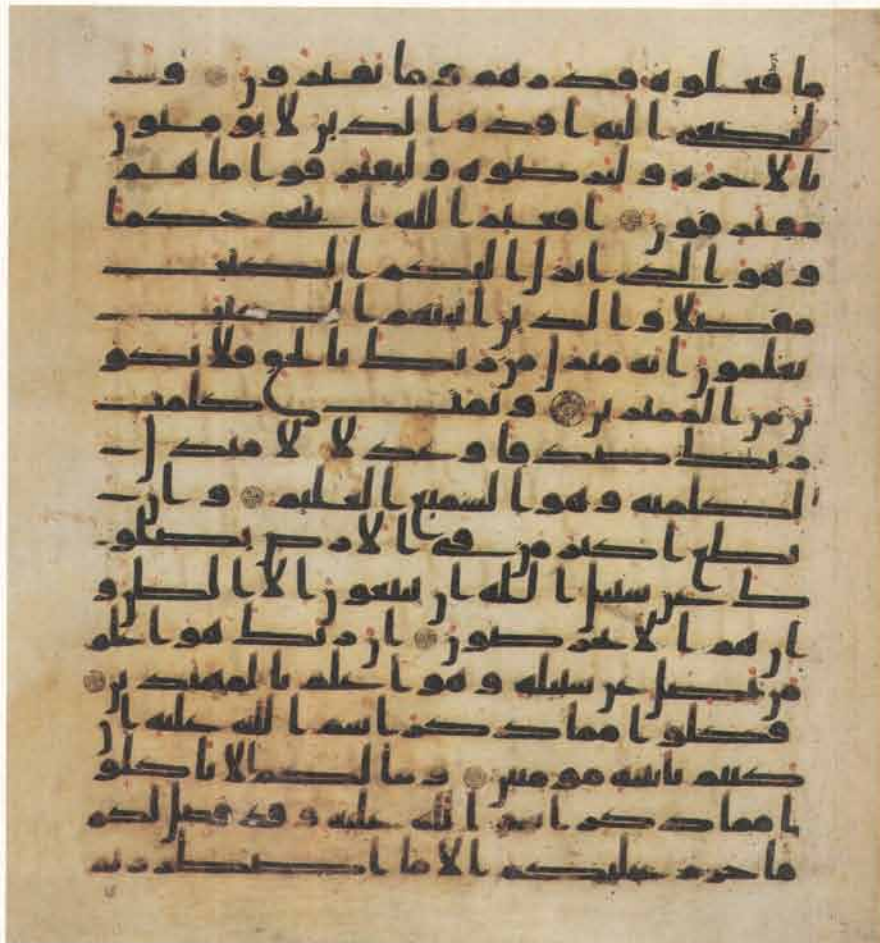 ما فعلوه فذرهم وما يفترون و
لتصغى اليه افدة الذين لا يومنون
بالاخرة وليرضوه وليقترفوا ما هم
مقترفون افغير الله ابتغى حكما
وهو الذى انزل اليكم الكتب
مفصلا والذين اتينهم الكتب
يعلمون انه منزل من ربك بالحق فلا تكو
نن من الممترين وتمت كلمت
ربك صدقا وعدلا لا مبدل
لكلمته وهو السميع العليم وان
تطع اكثر من فى الارض يضلو
ك عن سبيل الله ان يتبعون الا الظن و
ان هم الا يخرصون ان ربك هو اعلم
من يضل عن سبيله وهو اعلم بالمهتدين
فكلوا مما ذكر اسم الله عليه ان
كنتم بايته مومنين وما لكم الا تاكلو
ا مما ذكر اسم الله عليه وقد فصل لكم
ما حرم عليكم الا ما اضطررتم